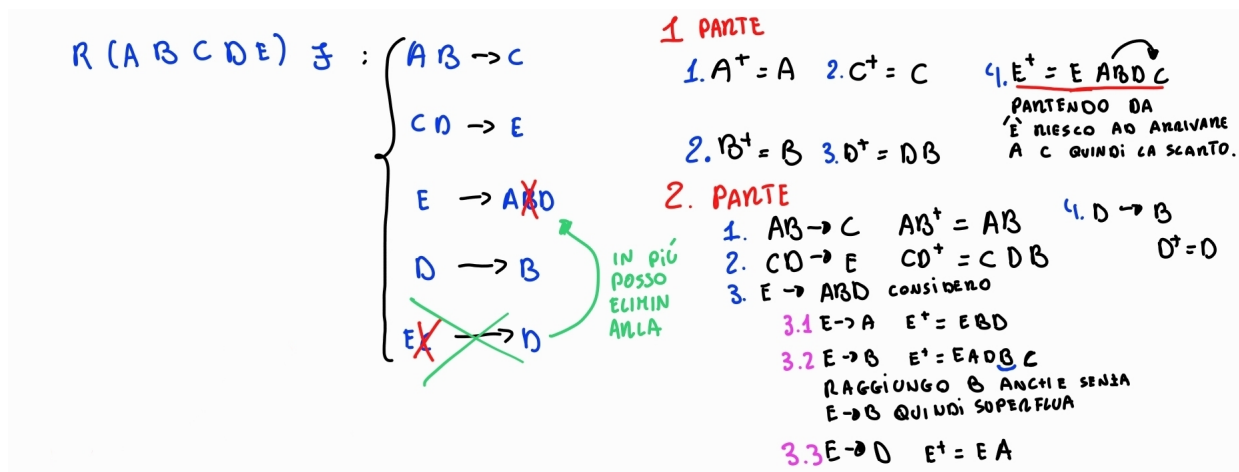 R (A B C D E) F : { A B → C
C D → E
E → ABD
D → B
EC → D
IN PIÚ
POSSO
ELIMIN
ARLA
1 PARTE
1. A⁺ = A 2. C⁺ = C
2. B⁺ = B 3. D⁺ = DB
4. E⁺ = E ABDC
PARTENDO DA
'E' RIESCO AD ARRIVARE
A C QUINDI LA SCARTO.
2. PARTE
1. AB → C AB⁺ = AB
2. CD → E CD⁺ = C D B
3. E → ABD CONSIDERO
3.1 E → A E⁺ = EBD
3.2 E → B E⁺ = EADBC
RAGGIUNGO B ANCHE SENZA
E → B QUINDI SUPERFLUA
3.3 E → D E⁺ = E A
4. D → B
D⁺ = D